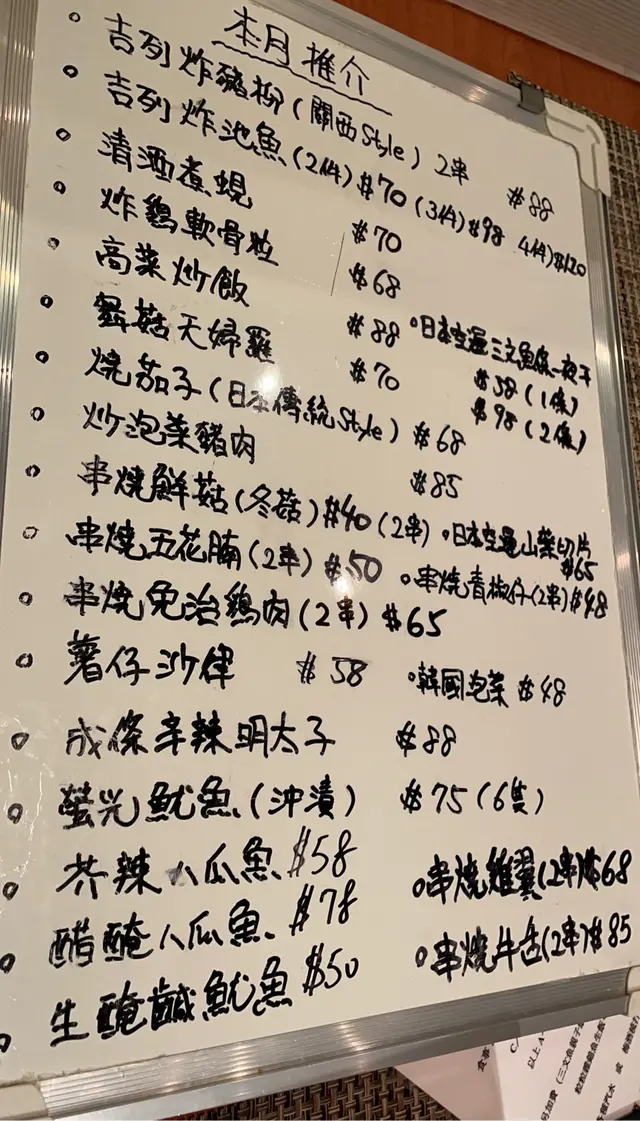 本月推介
吉列炸豬柳(關西Style) 2串 $88
吉列炸池魚(2件)$70 (3件)$98 4件)$120
清酒煮蜆 $70
炸鷄軟骨粒 $68
高菜炒飯 $88
舞菇天婦羅 $70
·日本空運三文魚條一夜干
$58 (1條)
$98 (2條)
燒茄子(日本傳統Style) $68
炒泡菜豬肉 $85
串燒鮮菇(冬菇)$40 (2串)
·日本空運山藥切片
$65
串燒五花腩(2串) $50
·串燒青椒仔(2串)$48
串燒免治鷄肉(2串) $65
薯仔沙律 $58
·韓國泡菜 $48
成條辛辣明太子 $88
螢光魷魚(沖漬) $75 (6隻)
芥辣八爪魚 $58
·串燒雞翼(2串)$68
醋醃八爪魚 $78
·串燒牛舌(2串)$85
生醃鹹魷魚 $50